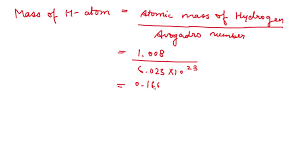 Mass of H-atom = Atomic mass of Hydrogen
Avogadro number
= 1.008
6.023 × 10²³
= 0.166